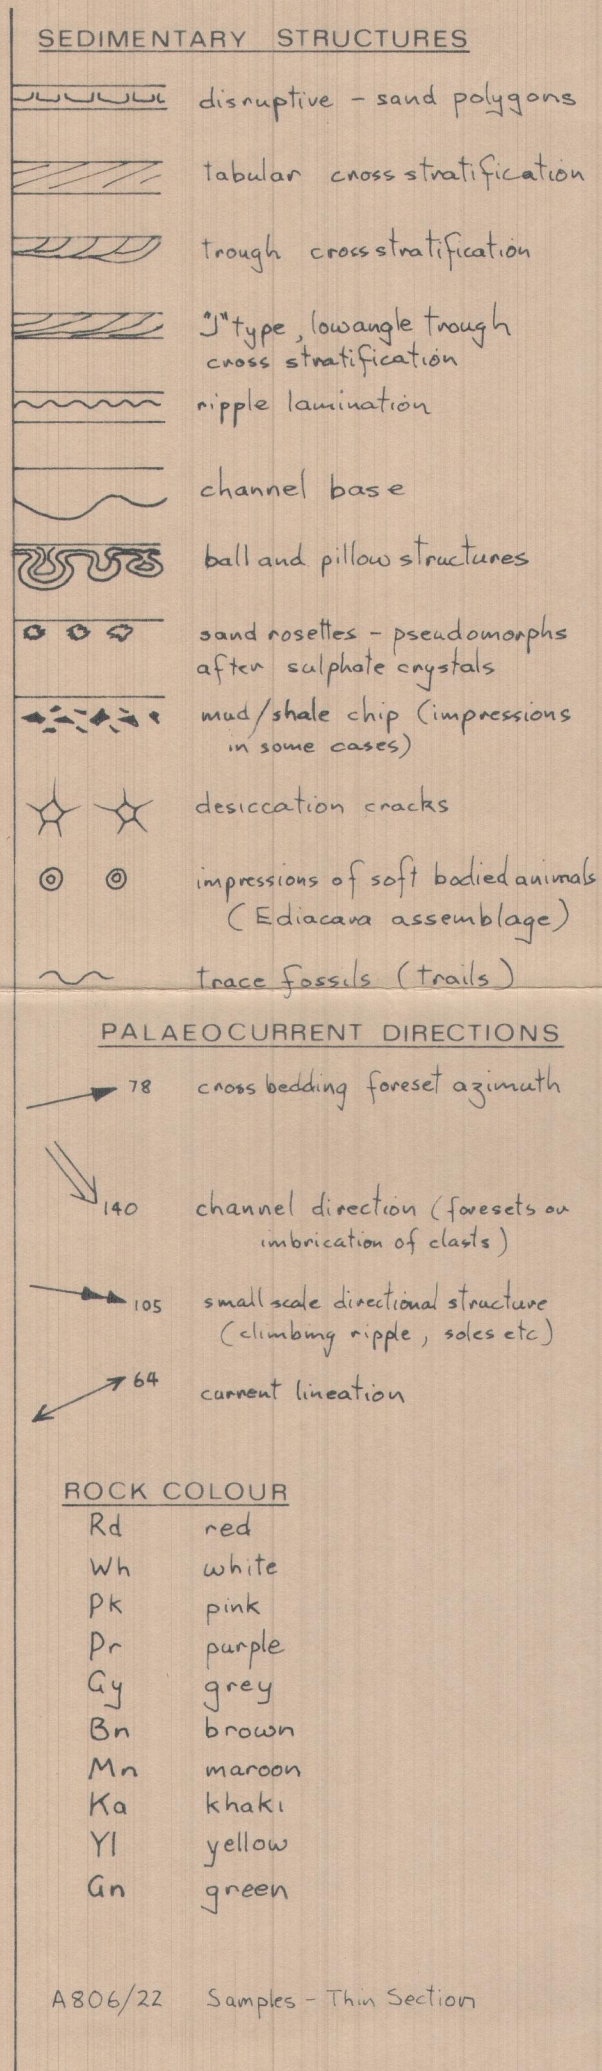 SEDIMENTARY STRUCTURES
disruptive - sand polygons
tabular cross stratification
trough cross stratification
"J" type, low angle trough
cross stratification
ripple lamination
channel base
ball and pillow structures
sand rosettes - pseudomorphs
after sulphate crystals
mud/shale chip (impressions
in some cases)
desiccation cracks
impressions of soft bodied animals
(Ediacara assemblage)
trace fossils (trails)
PALAEOCURRENT DIRECTIONS
78 cross bedding foreset azimuth
140 channel direction (foresets or
imbrication of clasts)
105 small scale directional structure
(climbing ripple, soles etc)
64 current lineation
ROCK COLOUR
Rd red
Wh white
Pk pink
Pr purple
Gy grey
Bn brown
Mn maroon
Ka khaki
Yl yellow
Gn green
A806/22 Samples - Thin Section